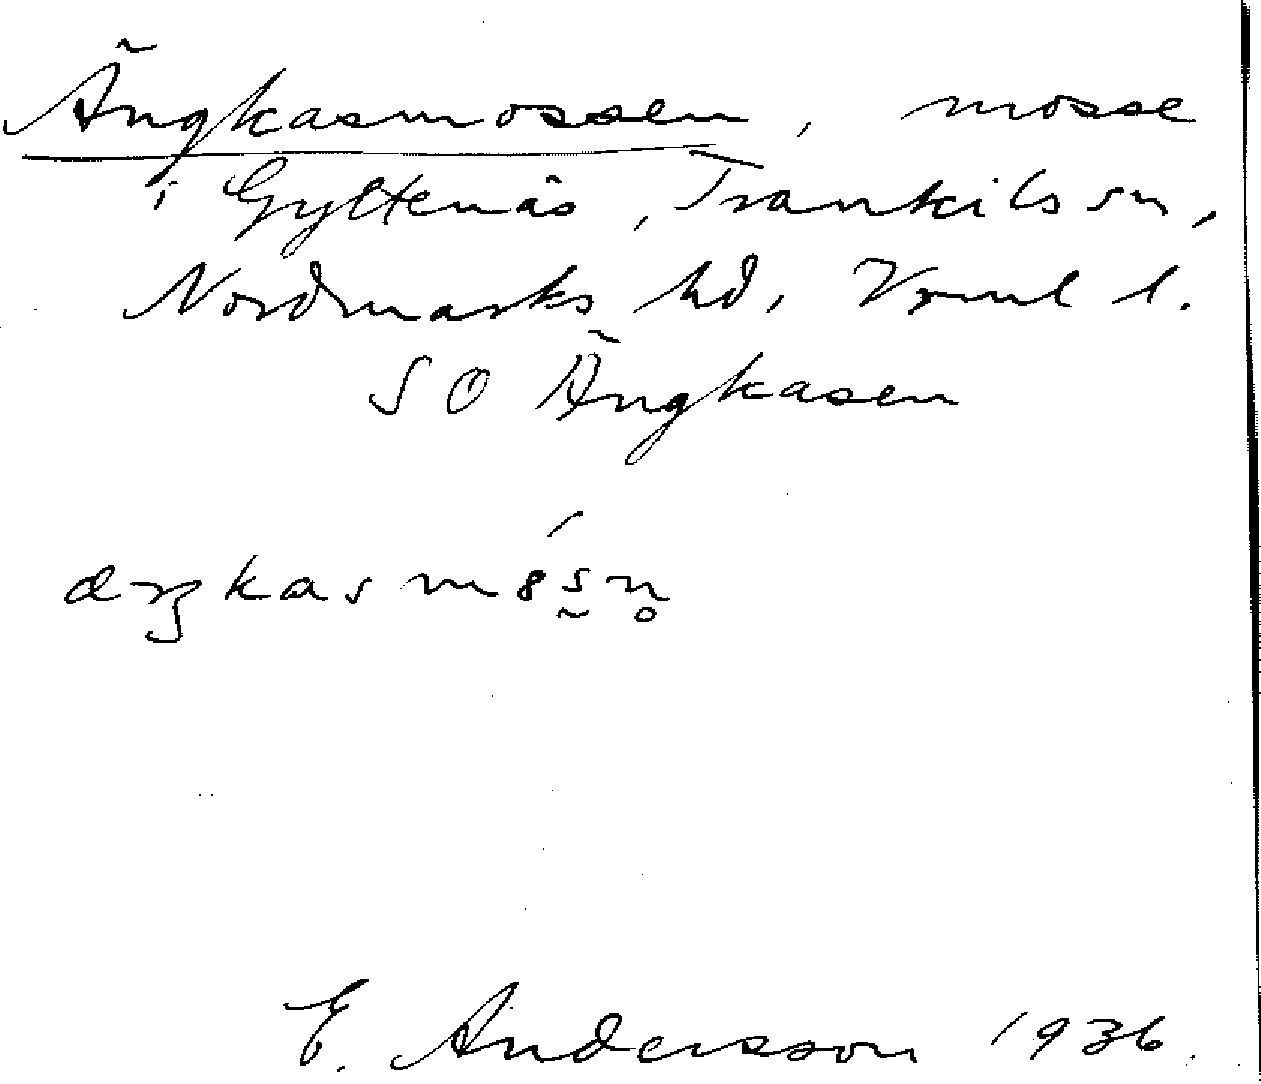 Ängkasmossen, mosse
i Gyltenäs, Trankils sn,
Nordmarks hd, Vrml l.
SO Ängkasen
æŋkasmósn̥
E. Andersson 1936.